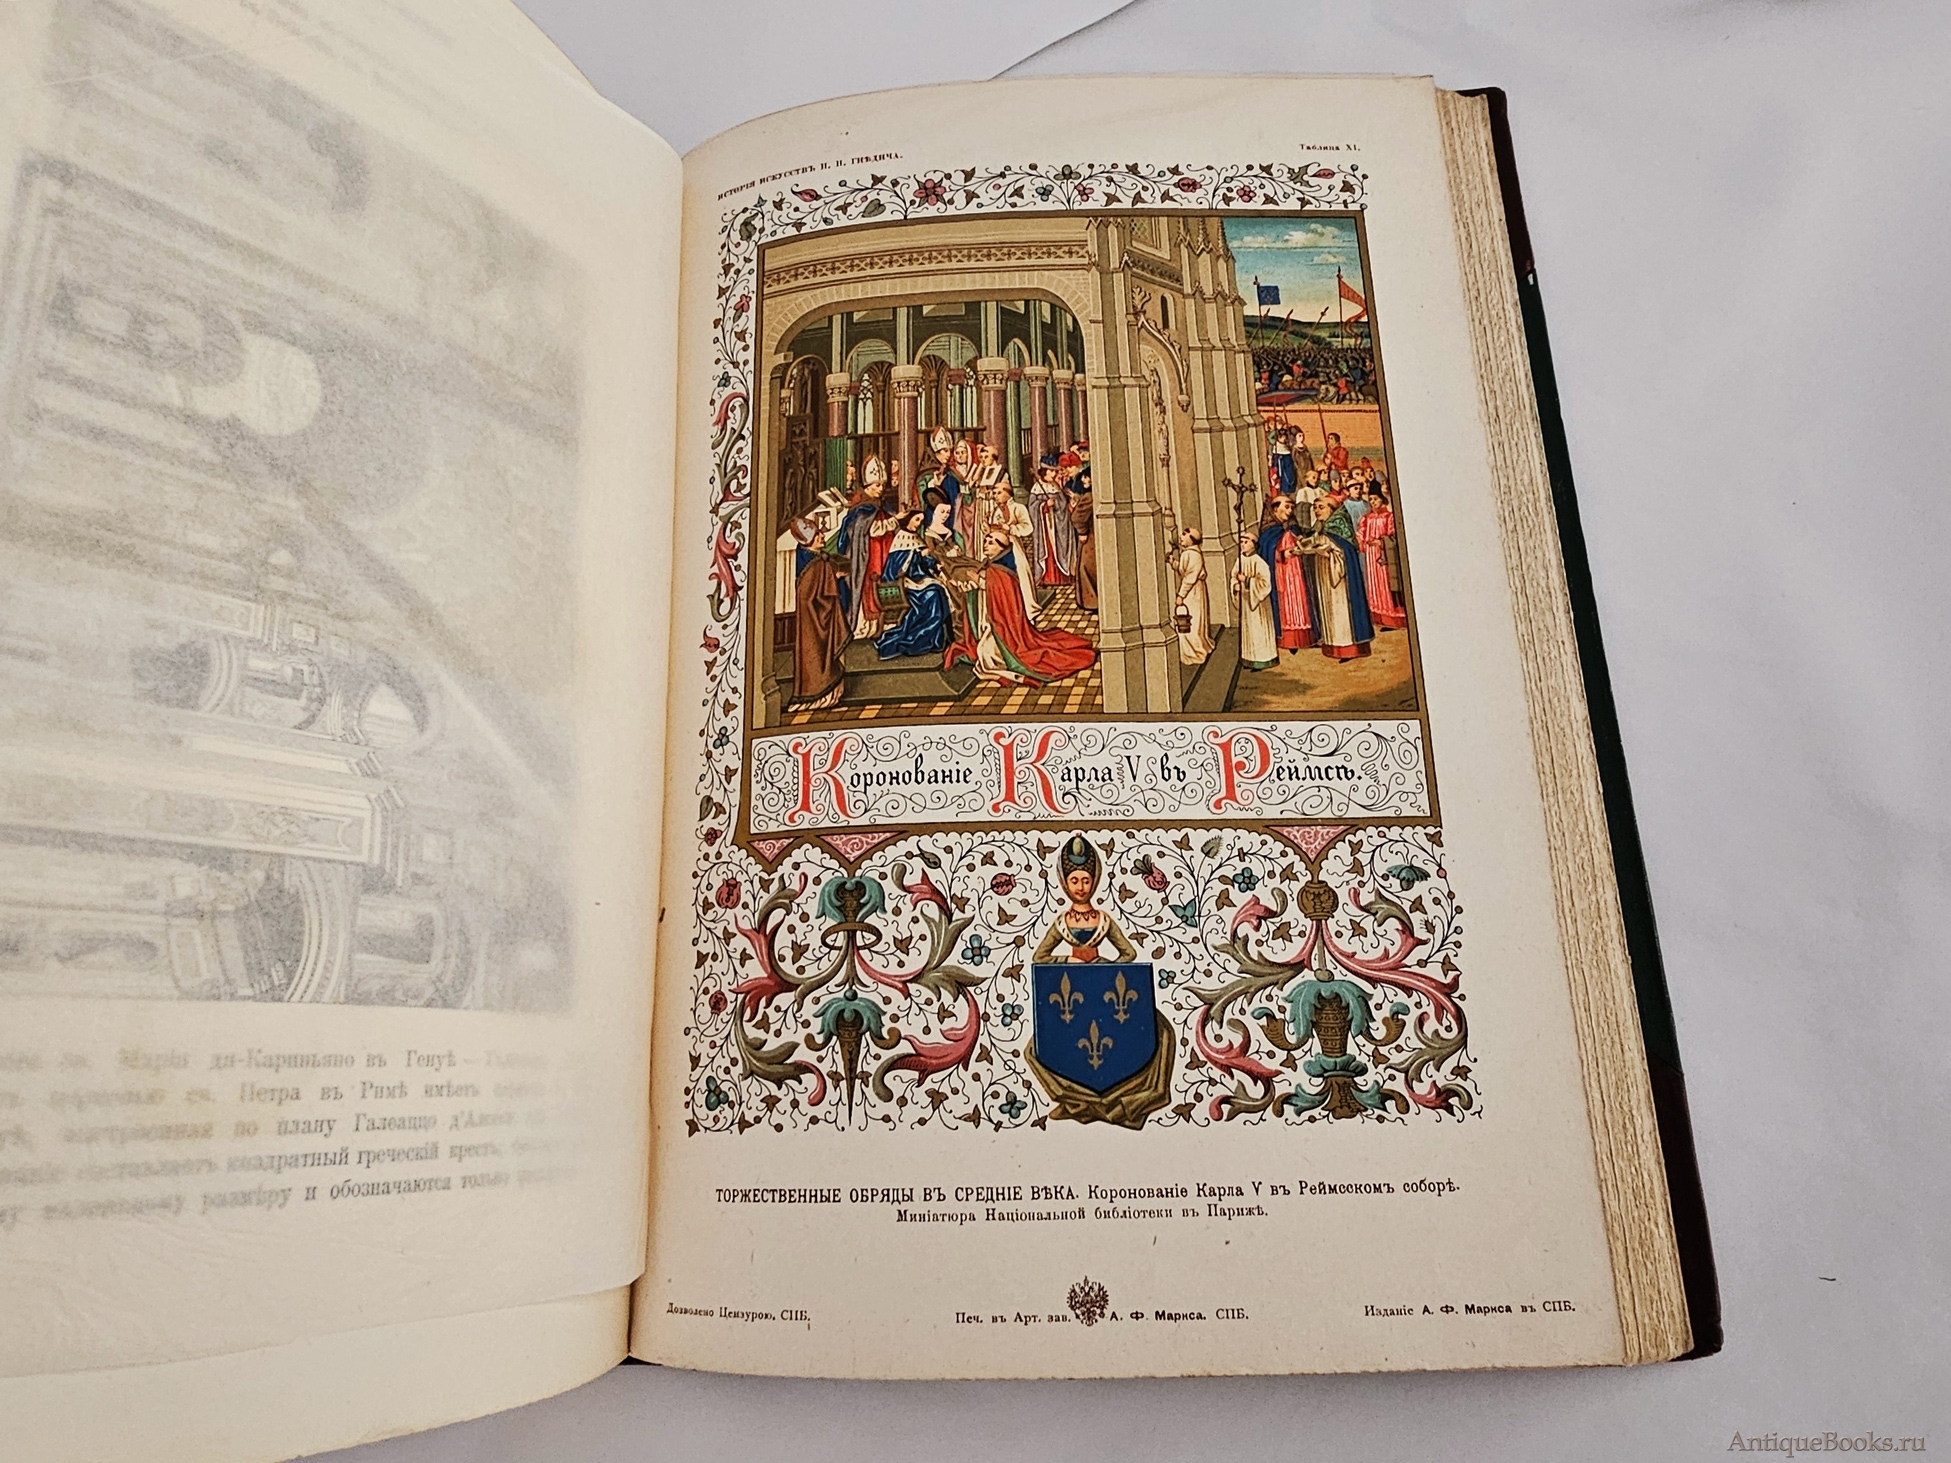 ди-Кариньяно въ Генуѣ
св. Петра въ Римѣ имѣетъ
по плану Галеаццо
составляетъ квадратный греческій крестъ,
размѣру и обозначаются только
ИСТОРІЯ ИСКУССТВЪ П. П. ГНѢДИЧА.
Таблица XI.
Коронованіе Карла V въ Реймсѣ.
ТОРЖЕСТВЕННЫЕ ОБРЯДЫ ВЪ СРЕДНІЕ ВѢКА. Коронованіе Карла V въ Реймсскомъ соборѣ.
Миніатюра Національной библіотеки въ Парижѣ.
Дозволено Цензурою, СПБ.
Печ. въ Арт. зав. А. Ф. Маркса. СПБ.
Изданіе А. Ф. Маркса въ СПБ.
AntiqueBooks.ru